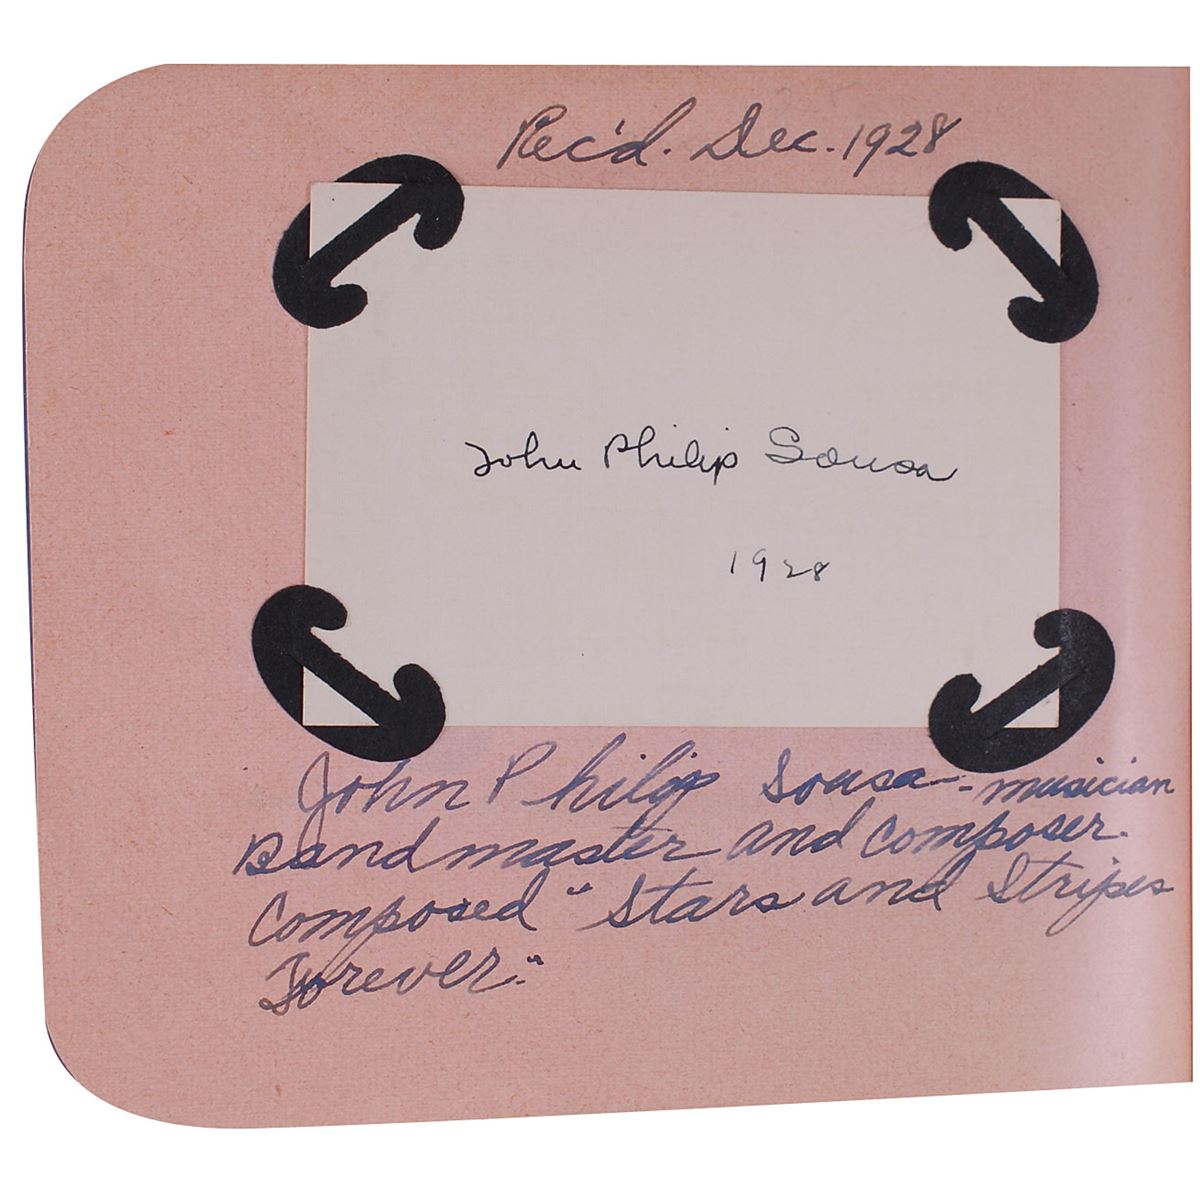 Rec'd. Dec. 1928
John Philip Sousa
1928
John Philip Sousa - musician
Bandmaster and composer.
Composed "Stars and Stripes
Forever."